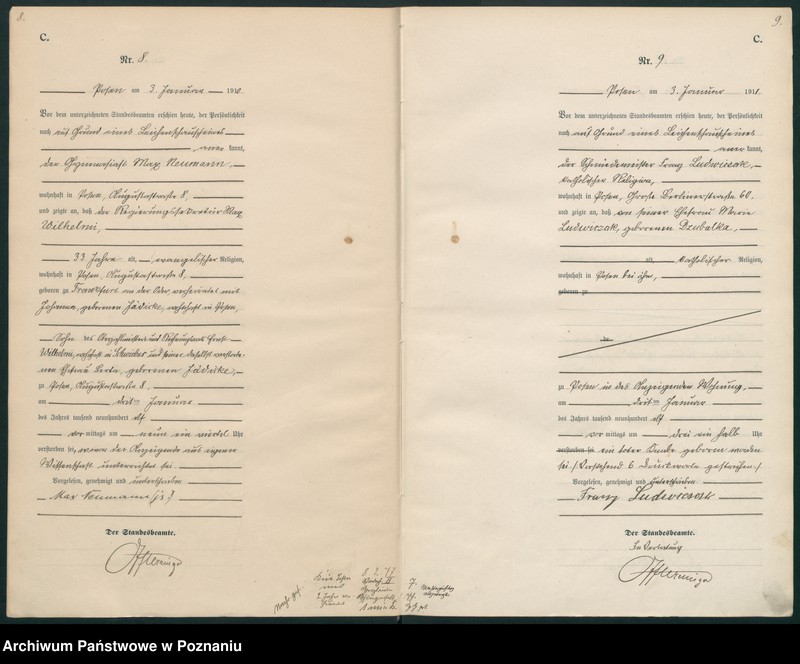 8.
C.
Nr. 8.
Posen am 3. Januar 1911.
Vor dem unterzeichneten Standesbeamten erschien heute, der Persönlichkeit
nach auf Grund eines Leichenschauscheines
aner kannt,
der Gymnasiast Max Neumann,
wohnhaft in Posen, Augustastraße 8,
und zeigte an, daß der Regierungssekretär Max
Wilhelmi,
33 Jahre alt, evangelischer Religion,
wohnhaft in Posen, Augustastraße 8,
geboren zu Frankfurt an der Oder, verheiratet mit
Johanna, geborenen Jädicke, wohnhaft in Posen,
Sohn des
Wilhelmi, wohnhaft in Schwiebus und seiner daselbst verstorbe-
nen Ehefrau Berta, geborenen Jädicke,
zu Posen, Augustastraße 8,
am dritten Januar
des Jahres tausend neunhundert elf
vor mittags um neun ein viertel Uhr
verstorben sei, wovon der Anzeigende aus eigener
Wissenschaft unterrichtet sei.
Vorgelesen, genehmigt und unterschrieben
Max Neumann
Der Standesbeamte.
9.
C.
Nr. 9.
Posen am 3. Januar 1911.
Vor dem unterzeichneten Standesbeamten erschien heute, der Persönlichkeit
nach auf Grund eines Leichenschauscheines
aner kannt,
der Schmiedemeister Franz Ludwiczak,
katholischer Religion,
wohnhaft in Posen, Große Berlinerstraße 60,
und zeigte an, daß von seiner Ehefrau Marie
Ludwiczak, geborenen Dzubalka,
alt, katholischer Religion,
wohnhaft in Posen bei ihm,
geboren zu
zu Posen in des Anzeigenden Wohnung,
am dritten Januar
des Jahres tausend neunhundert elf
vor mittags um drei ein halb Uhr
verstorben sei ein toter Knabe geboren worden
sei. / Vorstehend 6 Druckworte gestrichen. /
Vorgelesen, genehmigt und unterschrieben
Franz Ludwiczak
Der Standesbeamte.
In Vertretung
Archiwum Państwowe w Poznaniu